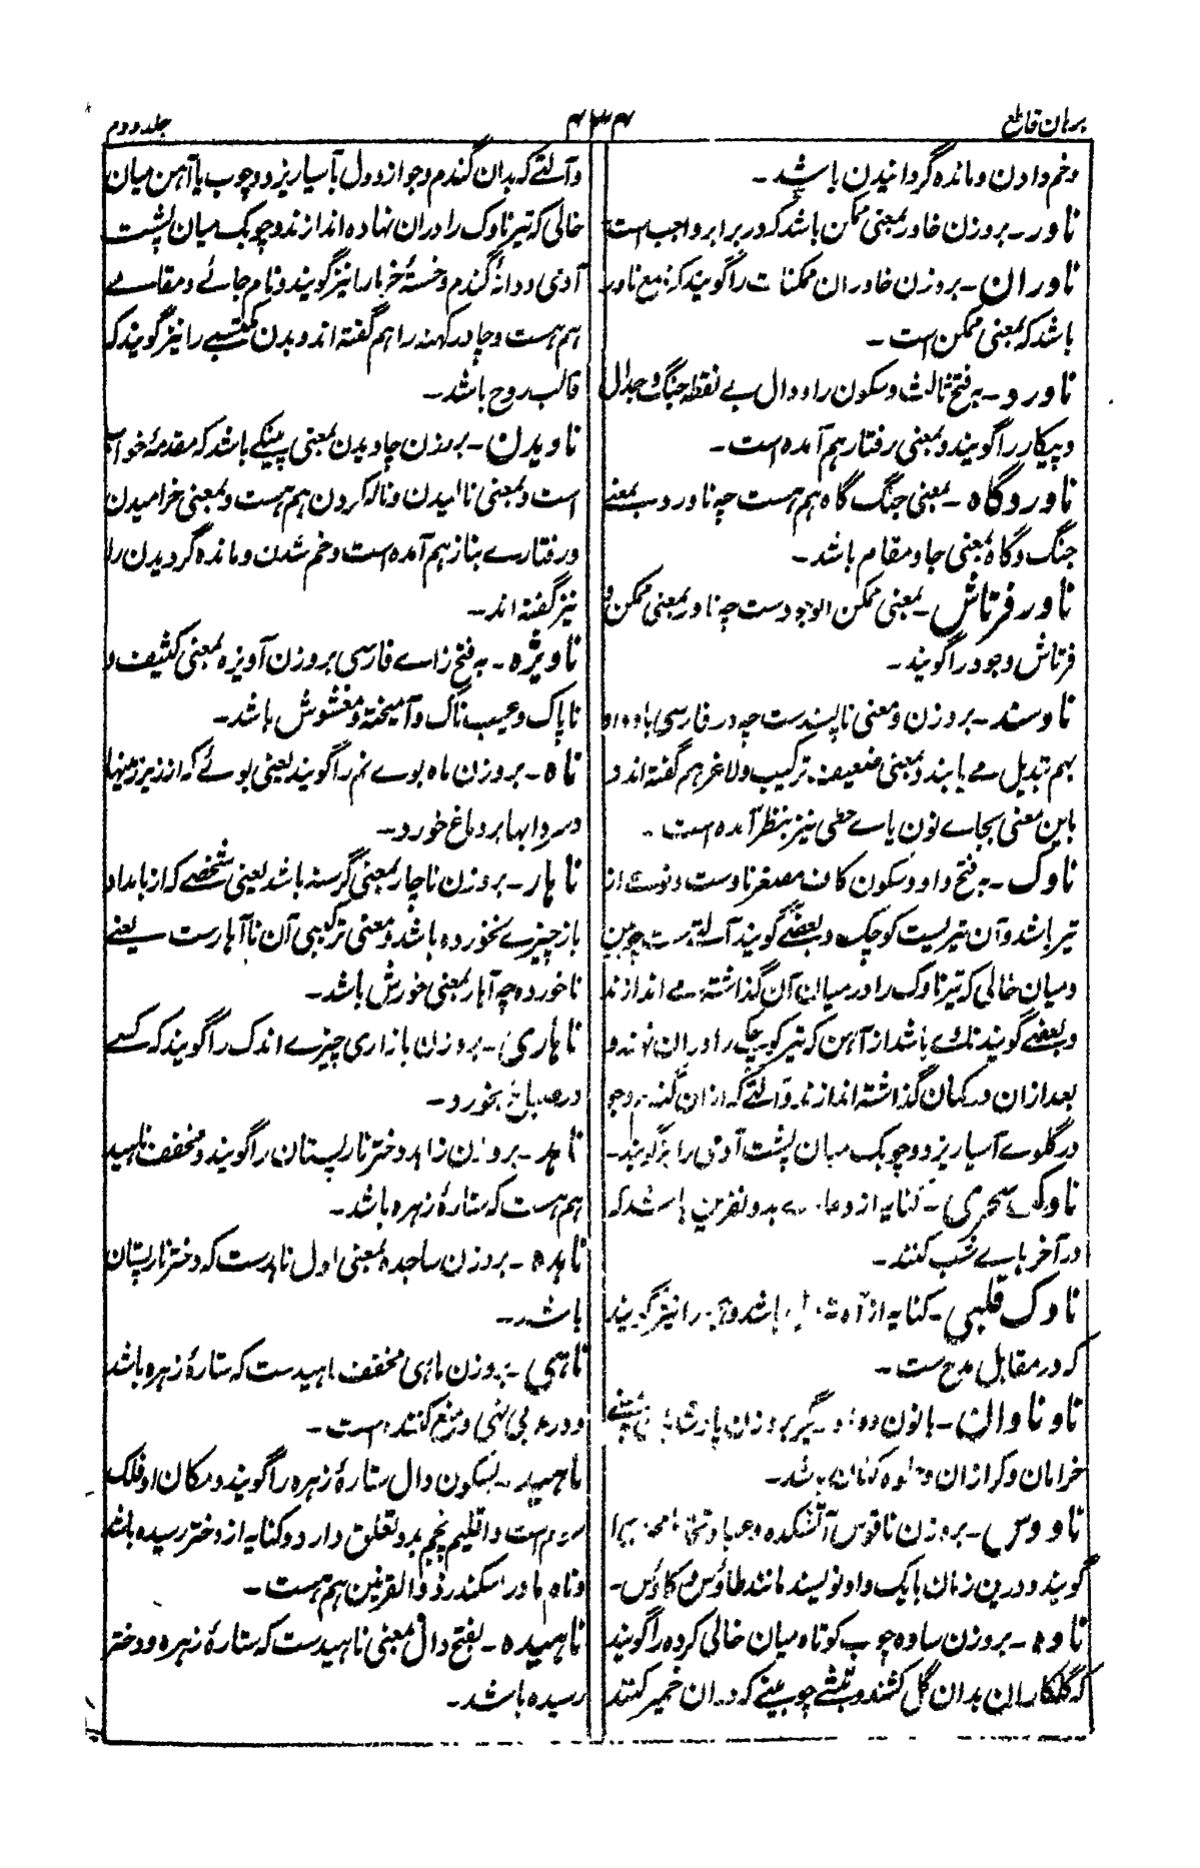 برهان قاطع
۴۳۴
جلد دوم
وخم دادن و مانده گردانیدن باشد -
ناور - بروزن خاور بمعنی ممکن باشد که در برابر واجب است
ناوران - بروزن خاوران ممکنات را گویند که جمع ناور
باشد که بمعنی ممکن است -
ناورد - به فتح ثالث و سکون را و دال بے نقطه جنگ و جدال
و پیکار را گویند و بمعنی رفتار هم آمده است -
ناوردگاه - بمعنی جنگ گاه هم هست چه ناورد بمعنے
جنگ و گاه بمعنی جا و مقام باشد -
ناور فرتاش - بمعنی ممکن الوجودست چه ناور بمعنی ممکن و
فرتاش وجود را گویند -
ناوسند - بروزن و معنی ناپسندست چه در فارسی با و واو
بهم تبدیل مے یابند و بمعنی ضعیف ترکیب و لاغر هم گفته اند و
باین معنی بجاے نون یاے حطی نیز بنظر آمده است -
ناوک - به فتح واو و سکون کاف مصغر ناوست و نوعے از
تیر باشد و آن تیریست کوچک و بعضے گویند آلتے ست چوبین
و میان خالی که تیر ناوک را در میان آن گذاشته مے اندازند
و بعضے گویند ناوے باشد از آهن که تیر کوچک را دران نهند و
بعد ازان در کمان گذاشته اندازند و آلتے که ازان گندم و جو
در گلوے آسیا ریزد و چوبک میان پشت آدمی را نیز گویند -
ناوک سحری - کنایه از دعاے بد و نفرین باشد که
در آخرهاے شب کنند -
ناوک قلبی - کنایه از آه باشد و را نیز گویند
که در مقابل مدح ست -
ناوناوان - بانون و واو بروزن بمعنے
خرامان و گرازان و جلوه کنان باشد -
ناووس - بروزن ناقوس آتشکده و را
گویند و درین زمان بایک واو نویسند مانند طاؤس و کاؤس -
ناوه - بروزن ساوه چوب کوتاه میان خالی کرده را گویند
که گلکاران بدان گل کشند و تبشے چوبینے که دران خمیر کنند
و آلتے که بدان گندم و جو از دول بآسیا ریزد و چوب یا آهن میان
خالی که تیر ناوک را دران نهاده اندازند و چوبک میان پشت
آدمی و دانهٔ گندم و خستهٔ خرما را نیز گویند و نام جائے و مقامے
هم هست و چادر کهنه را هم گفته اند و بدن مکتسبے را نیز گویند که
قالب روح باشد -
ناویدن - بروزن جاویدن بمعنی پینکے باشد که مقدمهٔ خواب
است و بمعنی نالیدن و ناله کردن هم هست و بمعنی خرامیدن
و رفتارے بناز هم آمده است و خم شدن و مانده گردیدن را
نیز گفته اند -
ناویژه - به فتح زاے فارسی بروزن آویزه بمعنی کثیف و
ناپاک و عیب ناک و آمیخته و مغشوش باشد -
ناه - بروزن ماه بوے نم را گویند یعنی بوئے که از زیر زمینها
و سردابها بر دماغ خورد -
ناهار - بروزن ناچار بمعنی گرسنه باشد یعنی شخصے که از بامداد
باز چیزے نخورده باشد و معنی ترکیبی آن ناآهارست یعنے
ناخورده چه آهار بمعنی خورش باشد -
ناهاری - بروزن بازاری چیزے اندک را گویند که کسے
در صباح بخورد -
ناهد - بروزن زاهد دختر نارپستان را گویند و مخفف ناهید
هم هست که ستارهٔ زهره باشد -
ناهده - بروزن ساجده بمعنی اول ناهدست که دختر نارپستان
باشد -
ناهی - بروزن ماهی مخفف ناهیدست که ستارهٔ زهره باشد
و در عربی نهی و منع کننده است -
ناهید - بسکون دال ستارهٔ زهره را گویند و مکان او فلک
سوم ست و اقلیم پنجم بدو تعلق دارد و کنایه از دختر رسیده باشد
و نام مادر اسکندر ذوالقرنین هم هست -
ناهیده - بفتح دال بمعنی ناهیدست که ستارهٔ زهره و دختر
رسیده باشد -